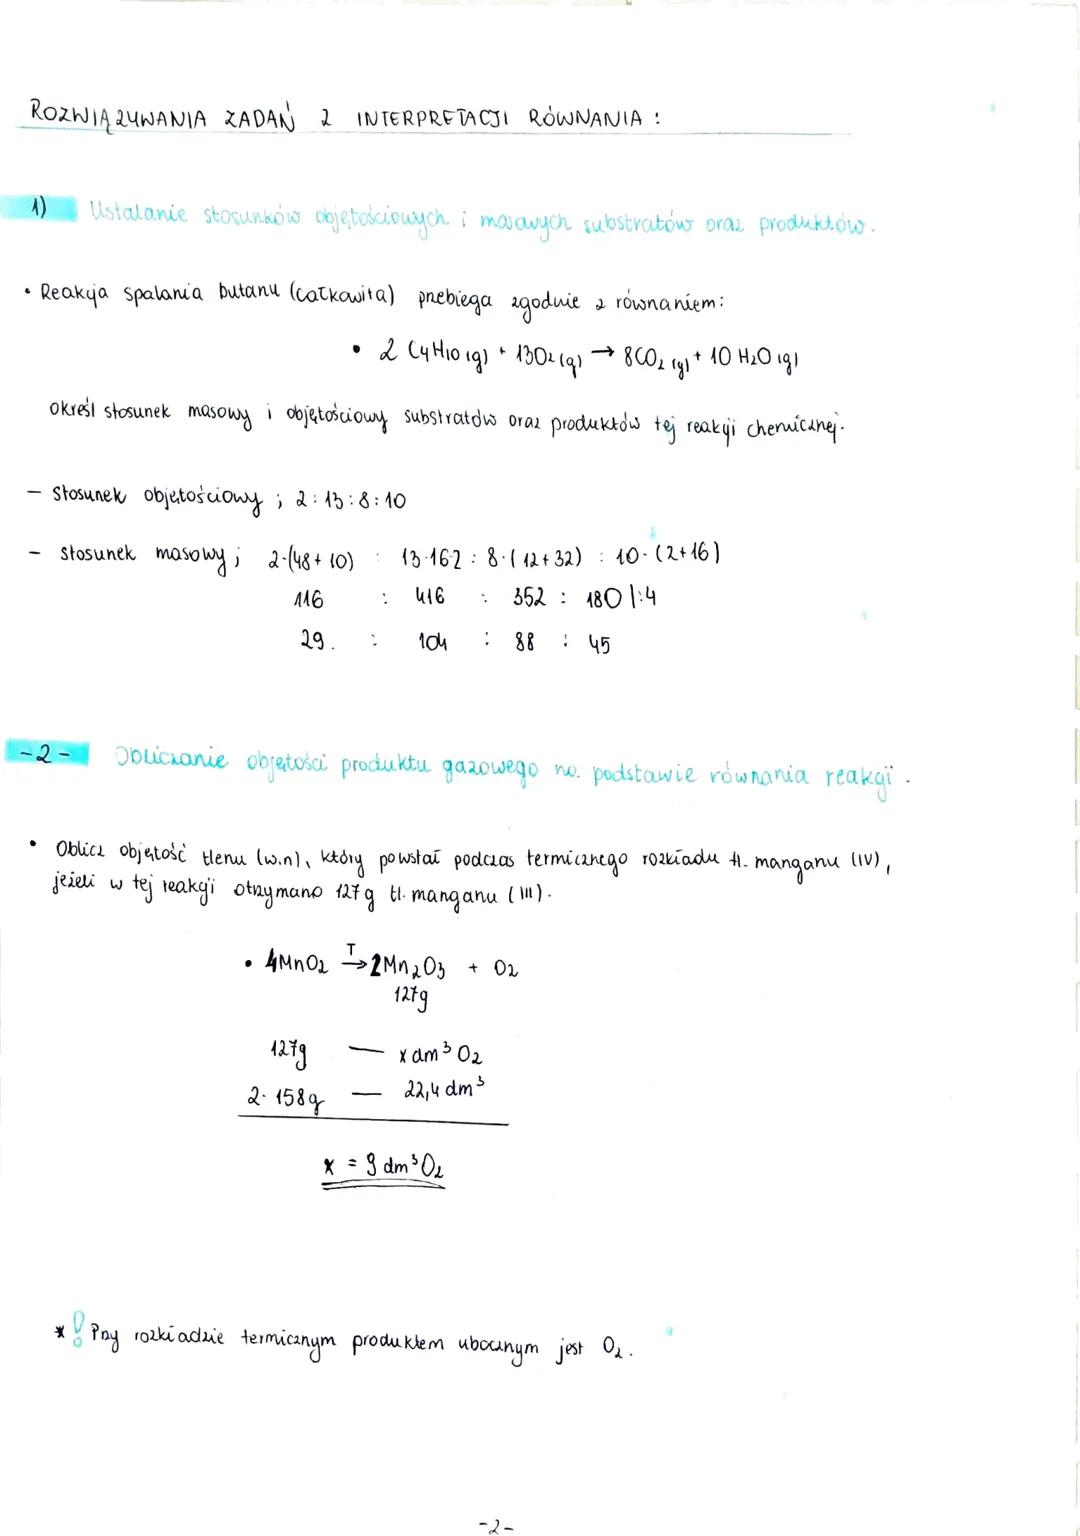 ROZWIĄZYWANIA ZADAŃ Z INTERPRETACJI RÓWNANIA :
1) Ustalanie stosunków objętościowych i masowych substratów oraz produktów.
• Reakcja spalania butanu (całkowita) przebiega zgodnie z równaniem:
• 2 C4H10 (g) + 13O2 (g) → 8CO2 (g) + 10 H2O (g)
określ stosunek masowy i objętościowy substratów oraz produktów tej reakcji chemicznej.
– Stosunek objętościowy ; 2 : 13 : 8 : 10
– stosunek masowy ; 2·(48+10) : 13·16·2 : 8·(12+32) : 10·(2+16)
116 : 416 : 352 : 180 |:4
29. : 104 : 88 : 45
-2- Obliczanie objętości produktu gazowego na podstawie równania reakcji.
• Oblicz objętość tlenu (w.n), który powstał podczas termicznego rozkładu tl. manganu (IV),
jeżeli w tej reakcji otrzymano 127g tl. manganu (III).
• 4MnO2 T→ 2Mn2O3 + O2
127g
127g — x dm³ O2
2·158g — 22,4 dm³
x = 9 dm³ O2
* ! Przy rozkładzie termicznym produktem ubocznym jest O2.
-2-